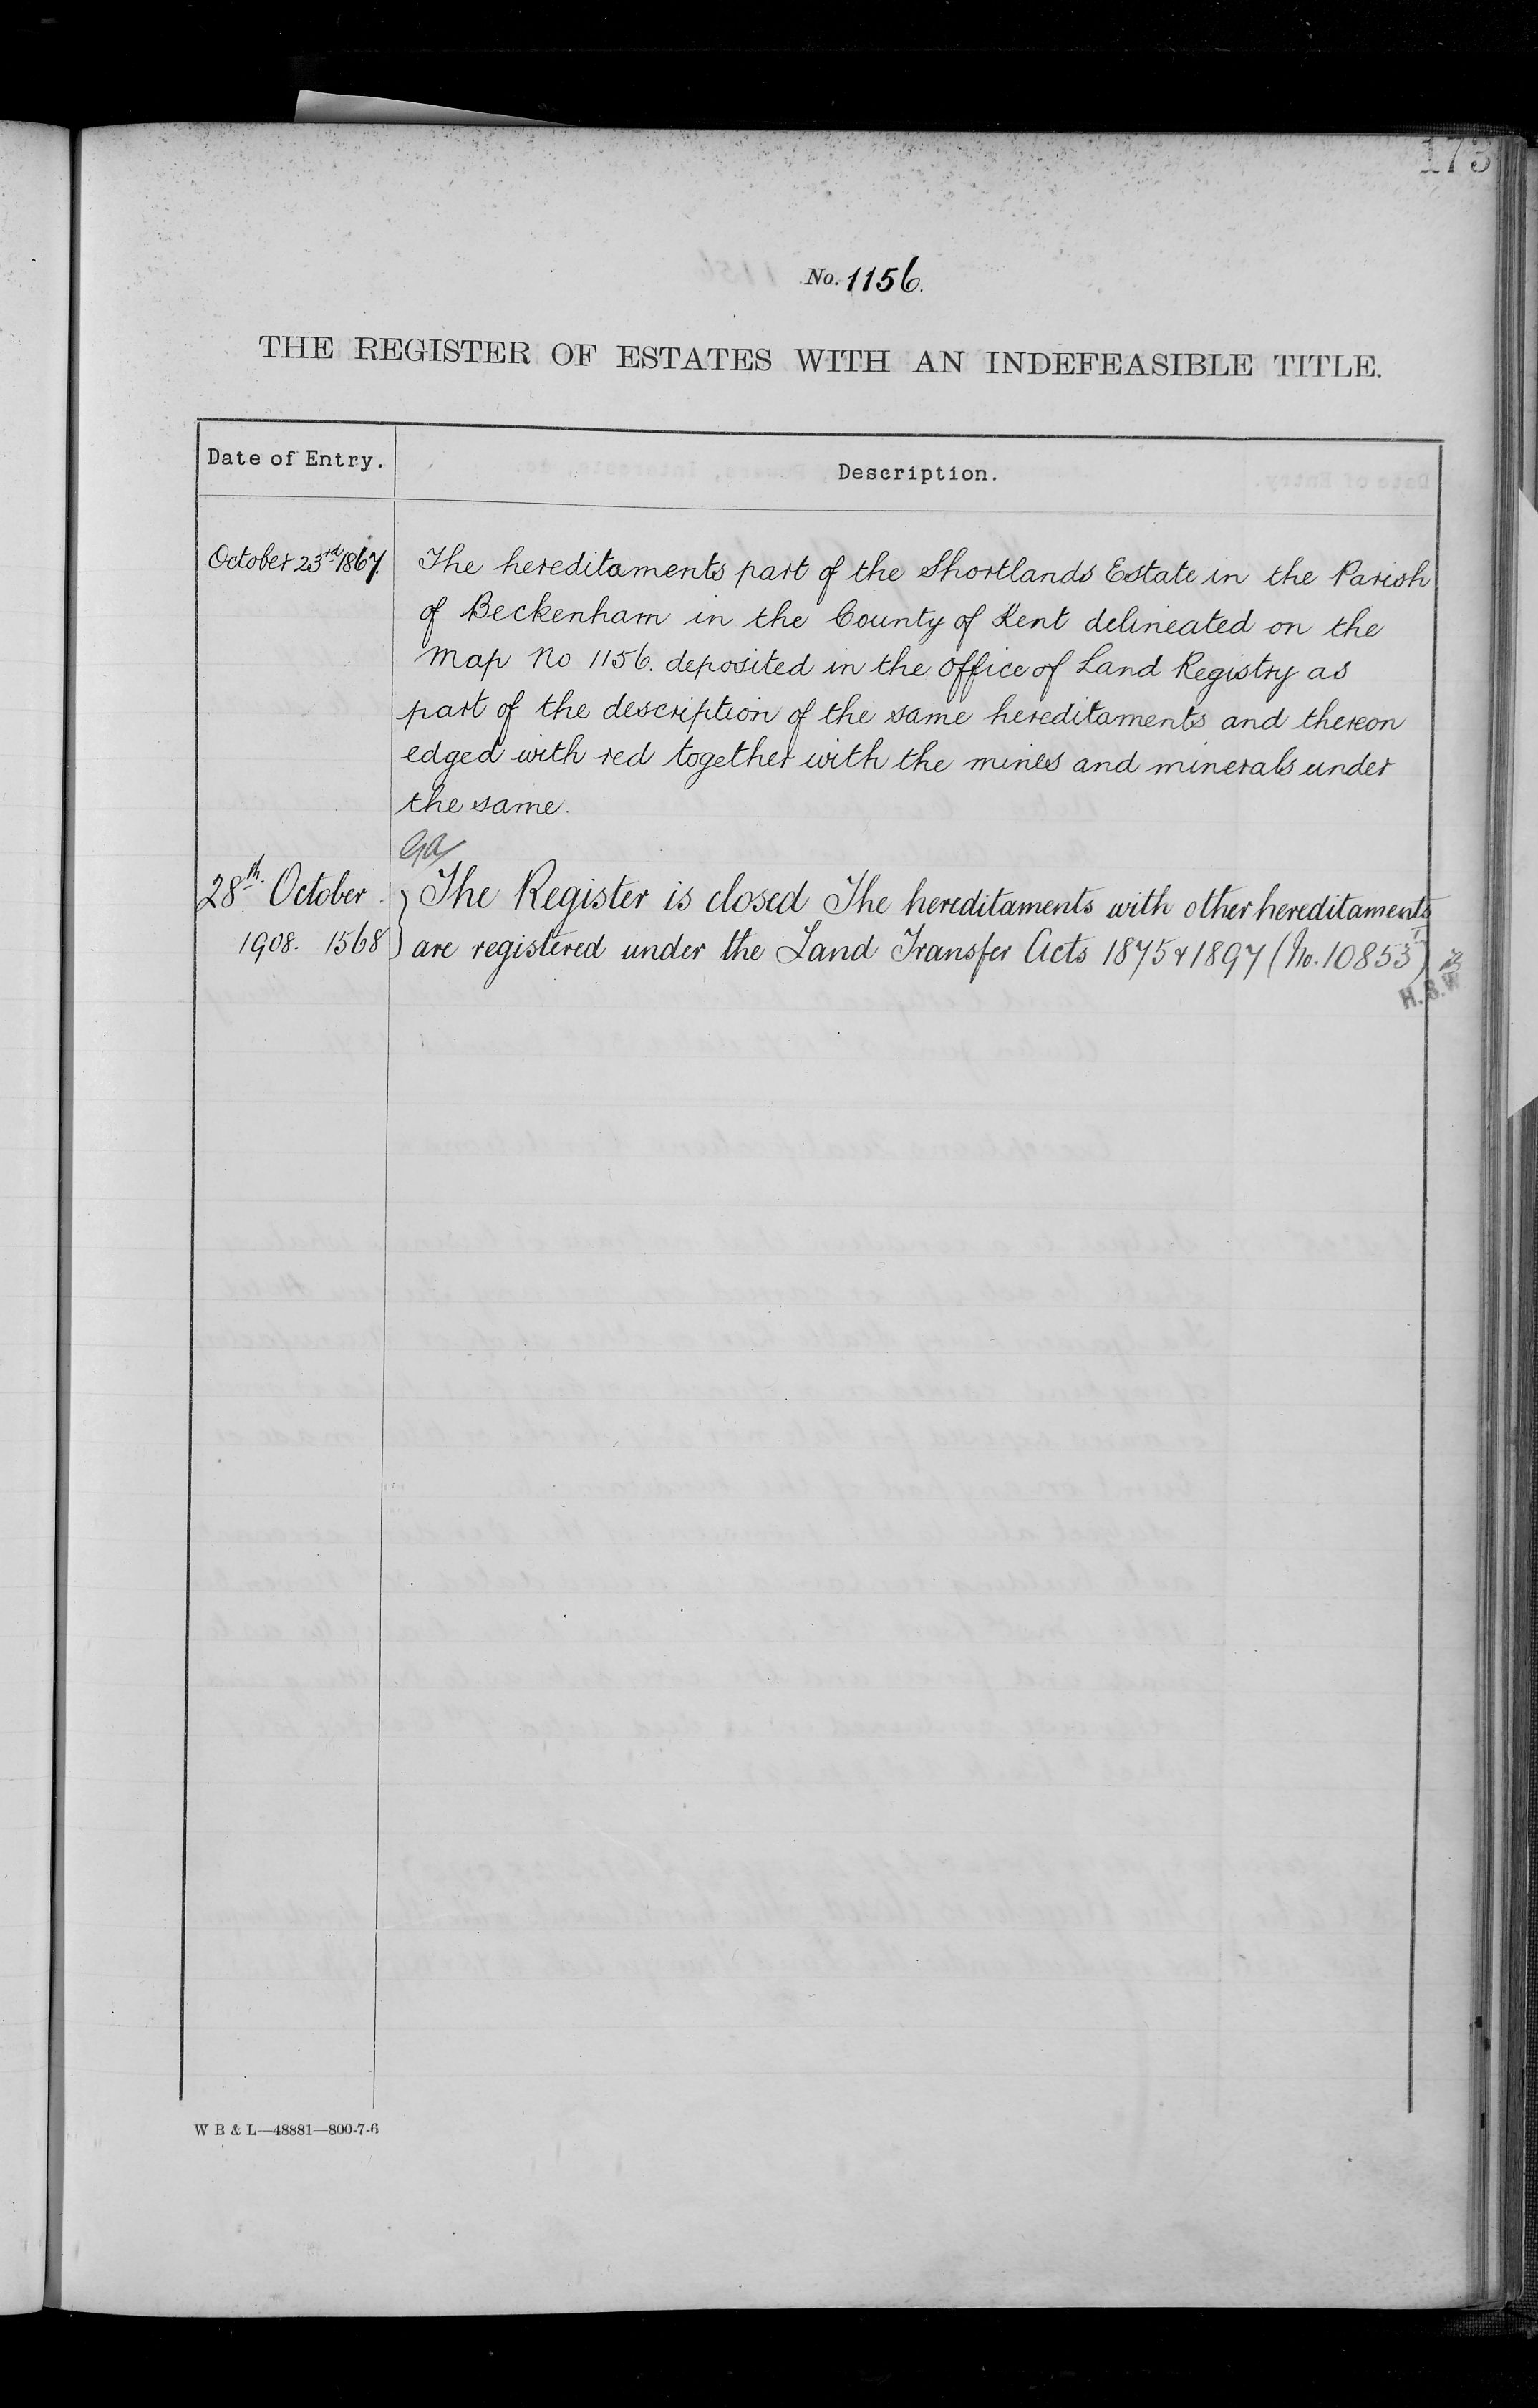 173
No. 1156.
THE REGISTER OF ESTATES WITH AN INDEFEASIBLE TITLE.
Date of Entry.
Description.
October 23rd 1867.
The hereditaments part of the Shortlands Estate in the Parish
of Beckenham in the County of Kent delineated on the
Map No 1156. deposited in the office of Land Registry as
part of the description of the same hereditaments and thereon
edged with red together with the mines and minerals under
the same.
28th. October
1908. 1568
The Register is closed The hereditaments with other hereditaments
are registered under the Land Transfer Acts 1875 & 1897 (No. 10853)
H.B.W
W B & L—48881—800-7-6